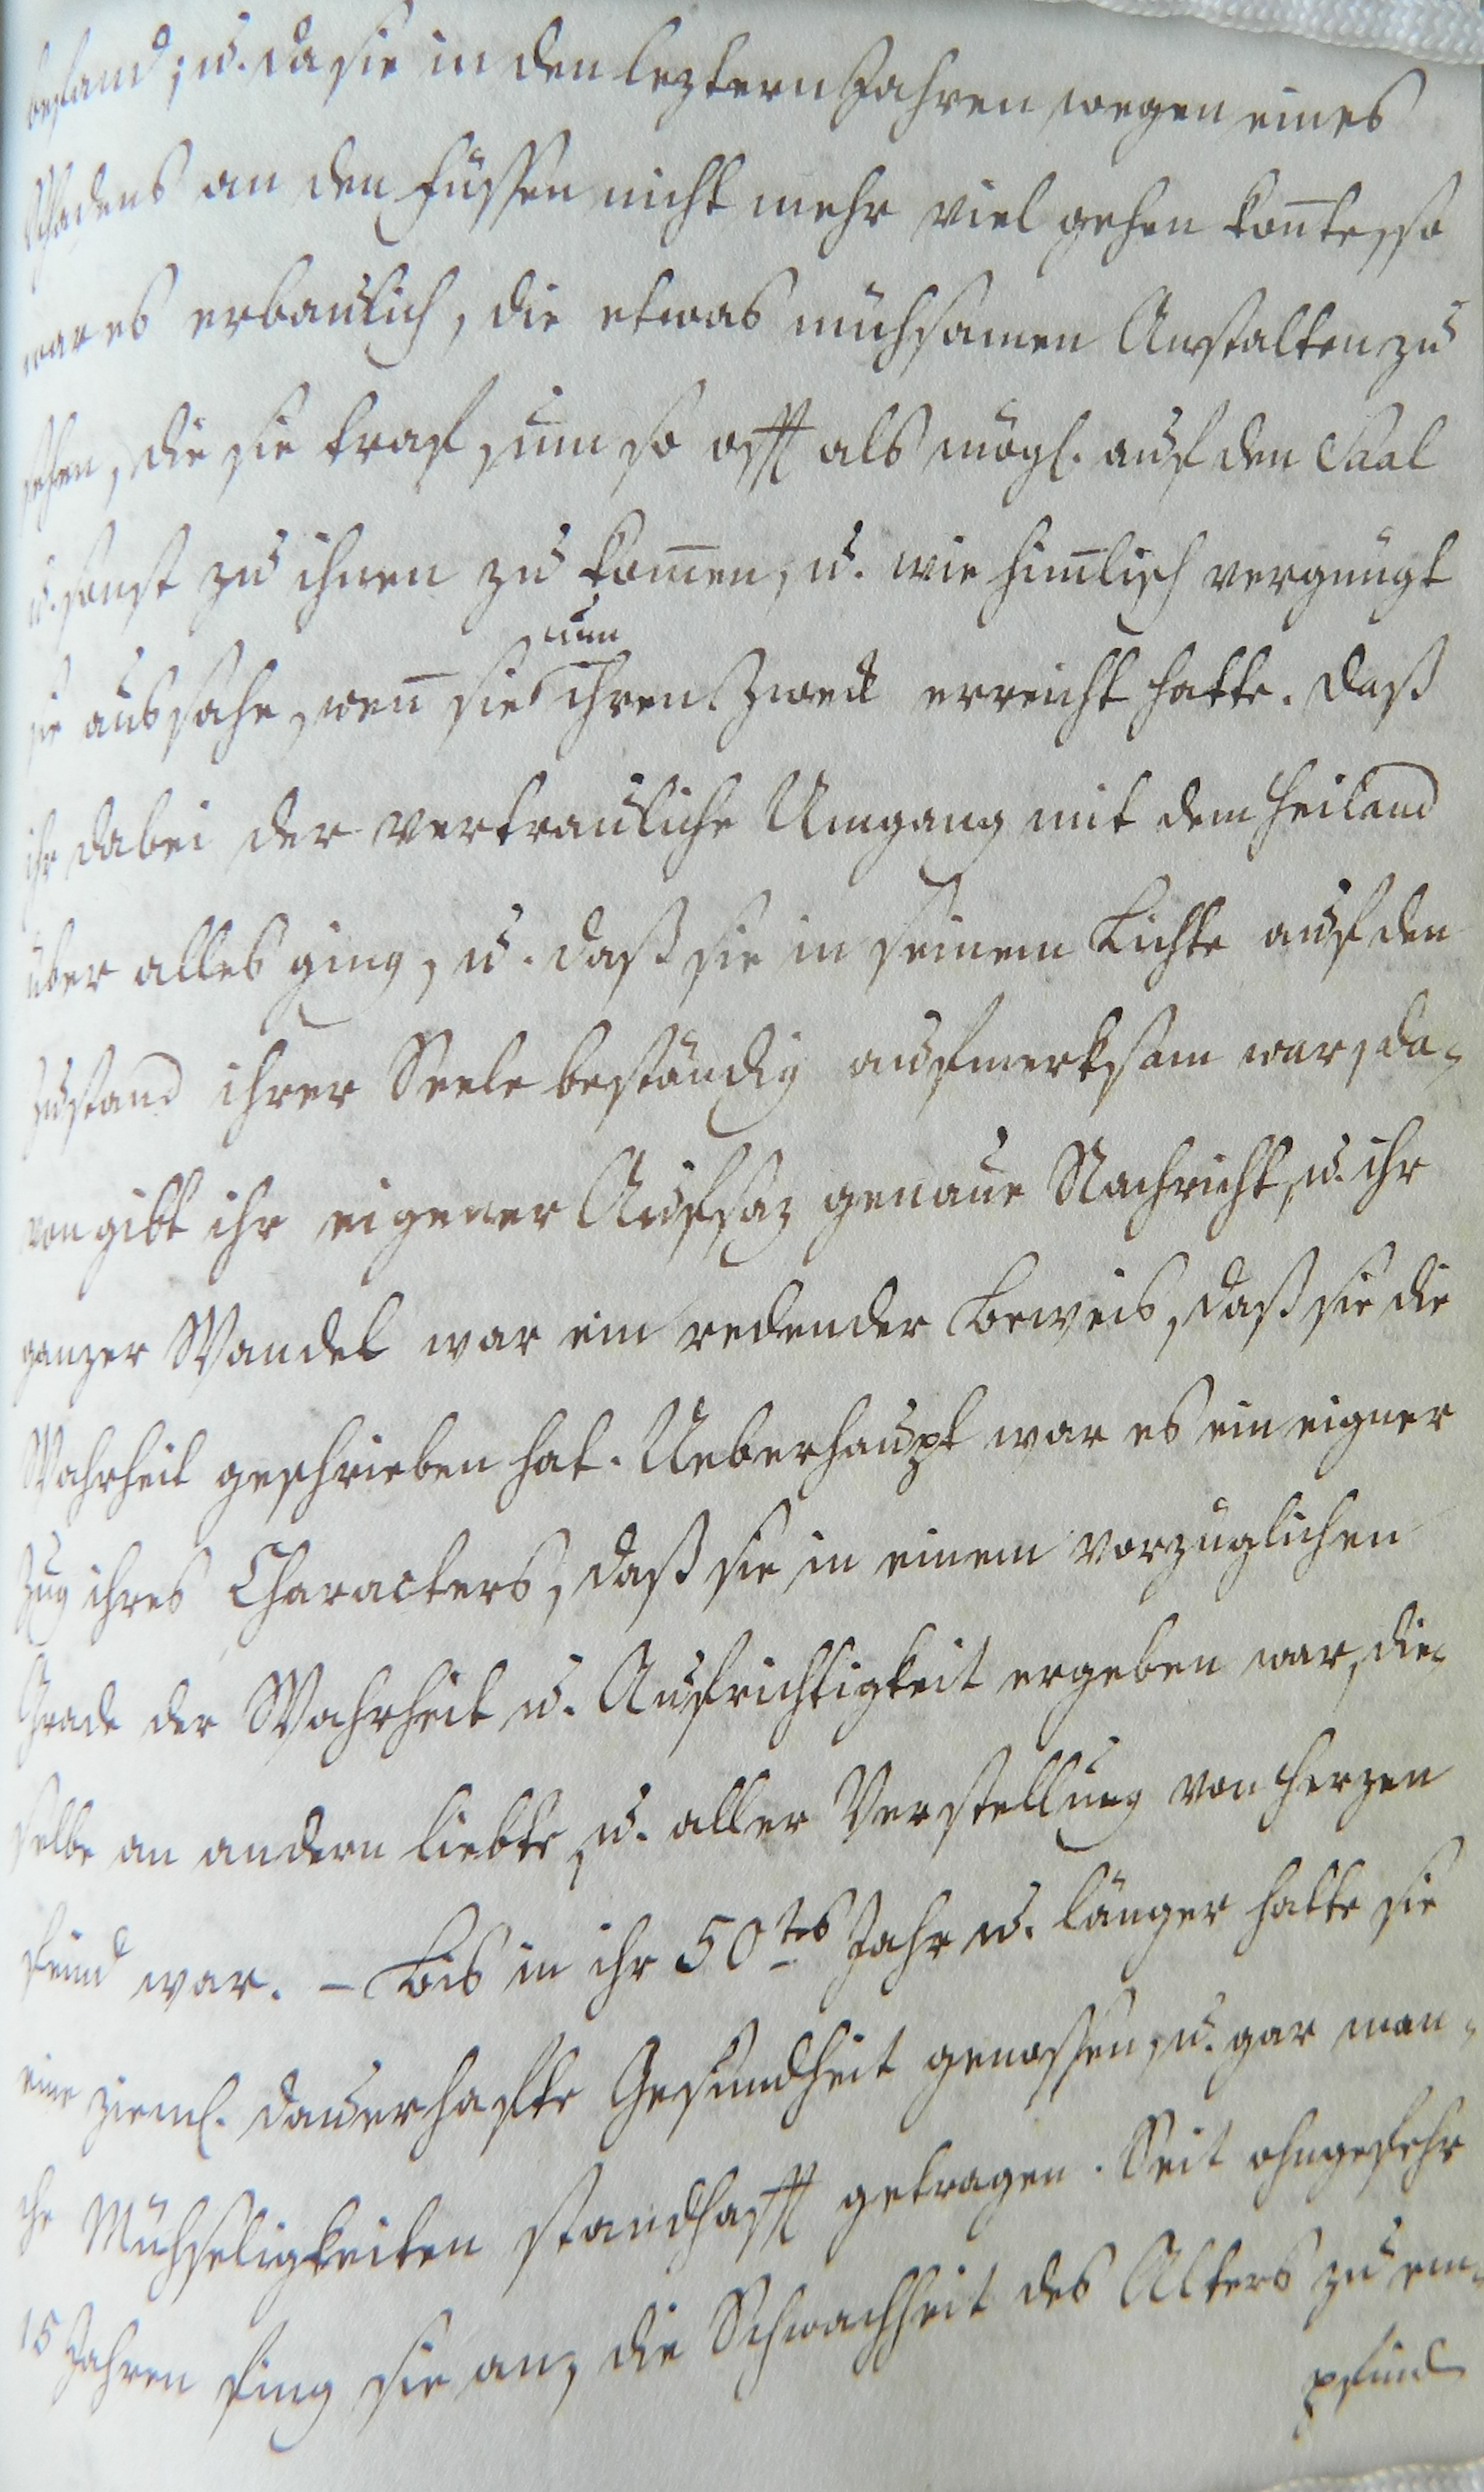 befand; u. da sie in den leztern Jahren wegen eines
Schadens an den Füssen nicht mehr viel gehen kon̅te, so
war es erbaulich, die etwas mühsamen Anstalten zu
sehen, die sie traf, um so offt als mögl. auf den Saal
u. sonst zu ihnen zu kom̅en, u. wie him̅lisch vergnügt
nun
sie aussahe, wen̅ sie ihren Zweck erreicht hatte. Daß
ihr dabei der vertrauliche Umgang mit dem Heiland
über alles ging, u. daß sie in seinem Lichte auf den
Zustand ihrer Seele beständig aufmerksam war, da-
von gibt ihr eigener Aufsaz genaue Nachricht, u. ihr
ganzer Wandel war ein redender Beweis, daß sie die
Wahrheit geschrieben hat. Ueberhaupt war es ein eigner
Zug ihres Characters, daß sie in einem vorzüglichen
Grade der Wahrheit u. Aufrichtigkeit ergeben war, die-
selbe an andern liebte, u. aller Verstellung von Herzen
feind war. – Bis in ihr 50tes Jahr u. länger hatte sie
eine zieml. dauerhafte Gesundheit genossen, u. gar man-
che Mühseligkeiten standhafft getragen. Seit ohngefehr
15 Jahren fing sie an, die Schwachheit des Alters zu em-
pfind